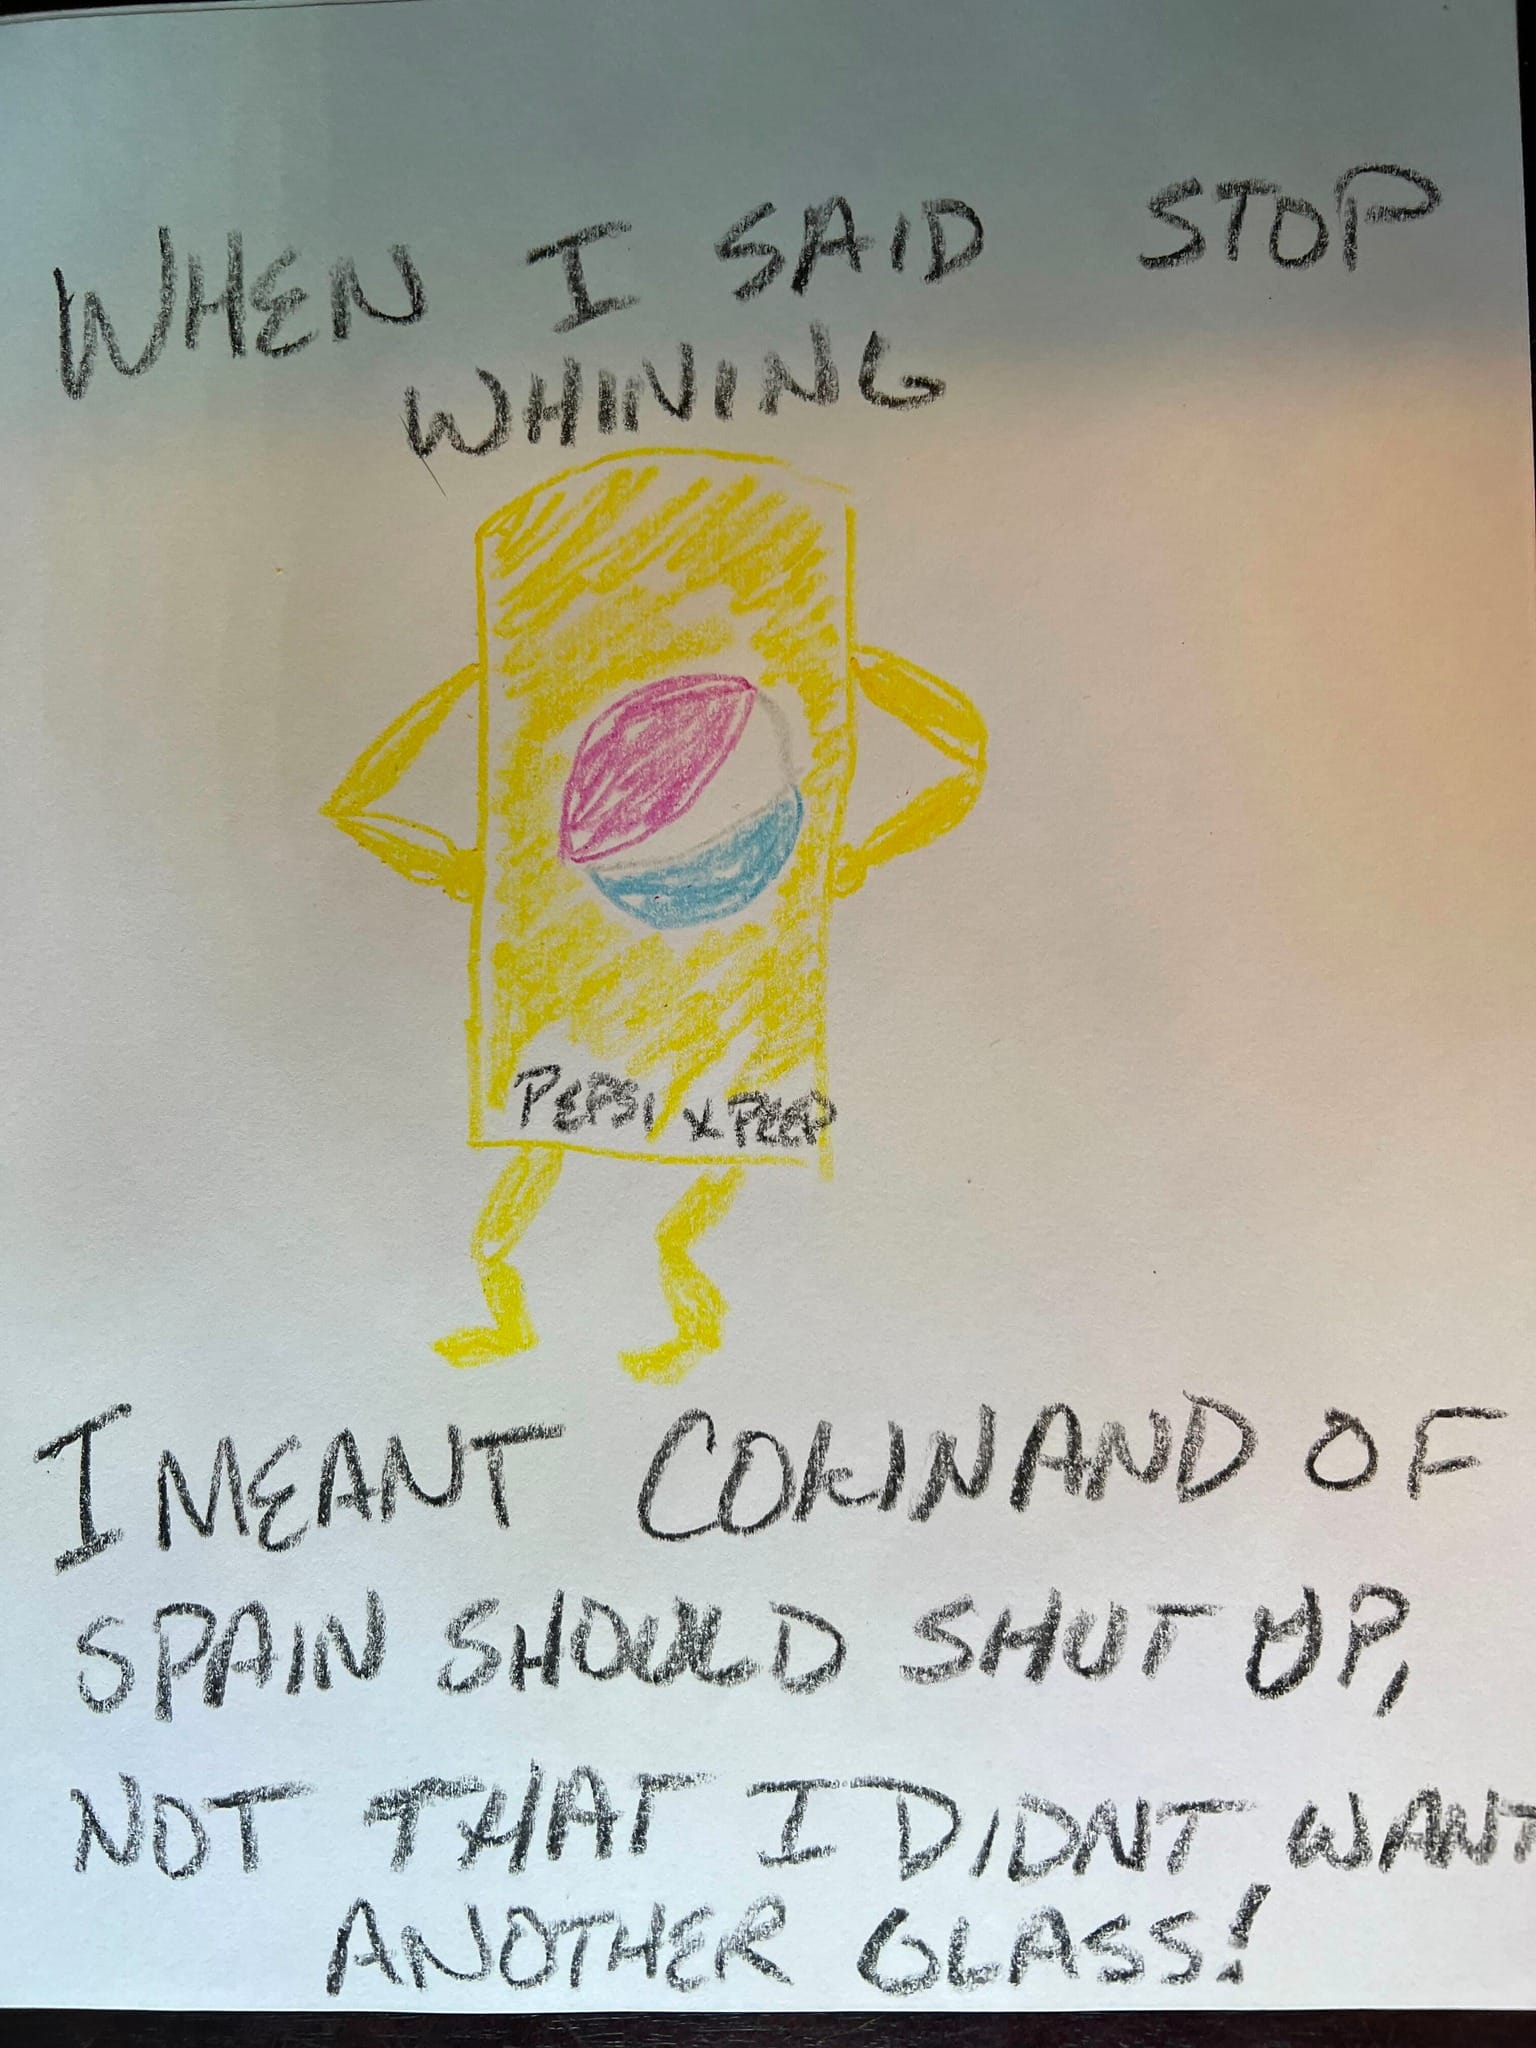 WHEN I SAID STOP
WHINING
PEPSI X PEEP
I MEANT COKINAND OF
SPAIN SHOULD SHUT UP,
NOT THAT I DIDNT WANT
ANOTHER GLASS!